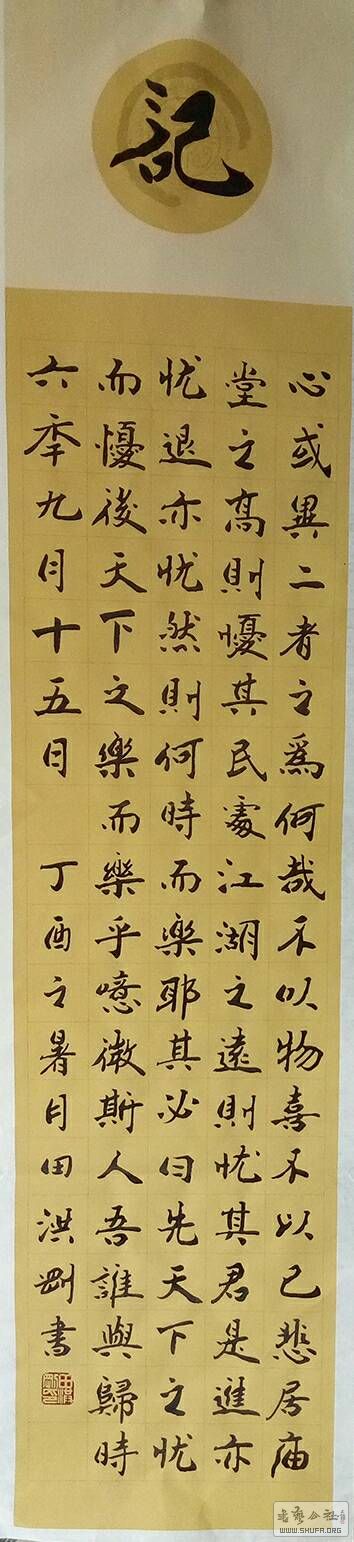 記
心或異二者之爲何哉不以物喜不以己悲居庙
堂之髙則懮其民處江湖之遠則忧其君是進亦
忧退亦忧然則何時而楽耶其必曰先天下之忧
而懮後天下之樂而樂乎噫微斯人吾誰與歸時
六秊九月十五日 丁酉之暑月田洪剛書
书艺公社
WWW.SHUFA.ORG